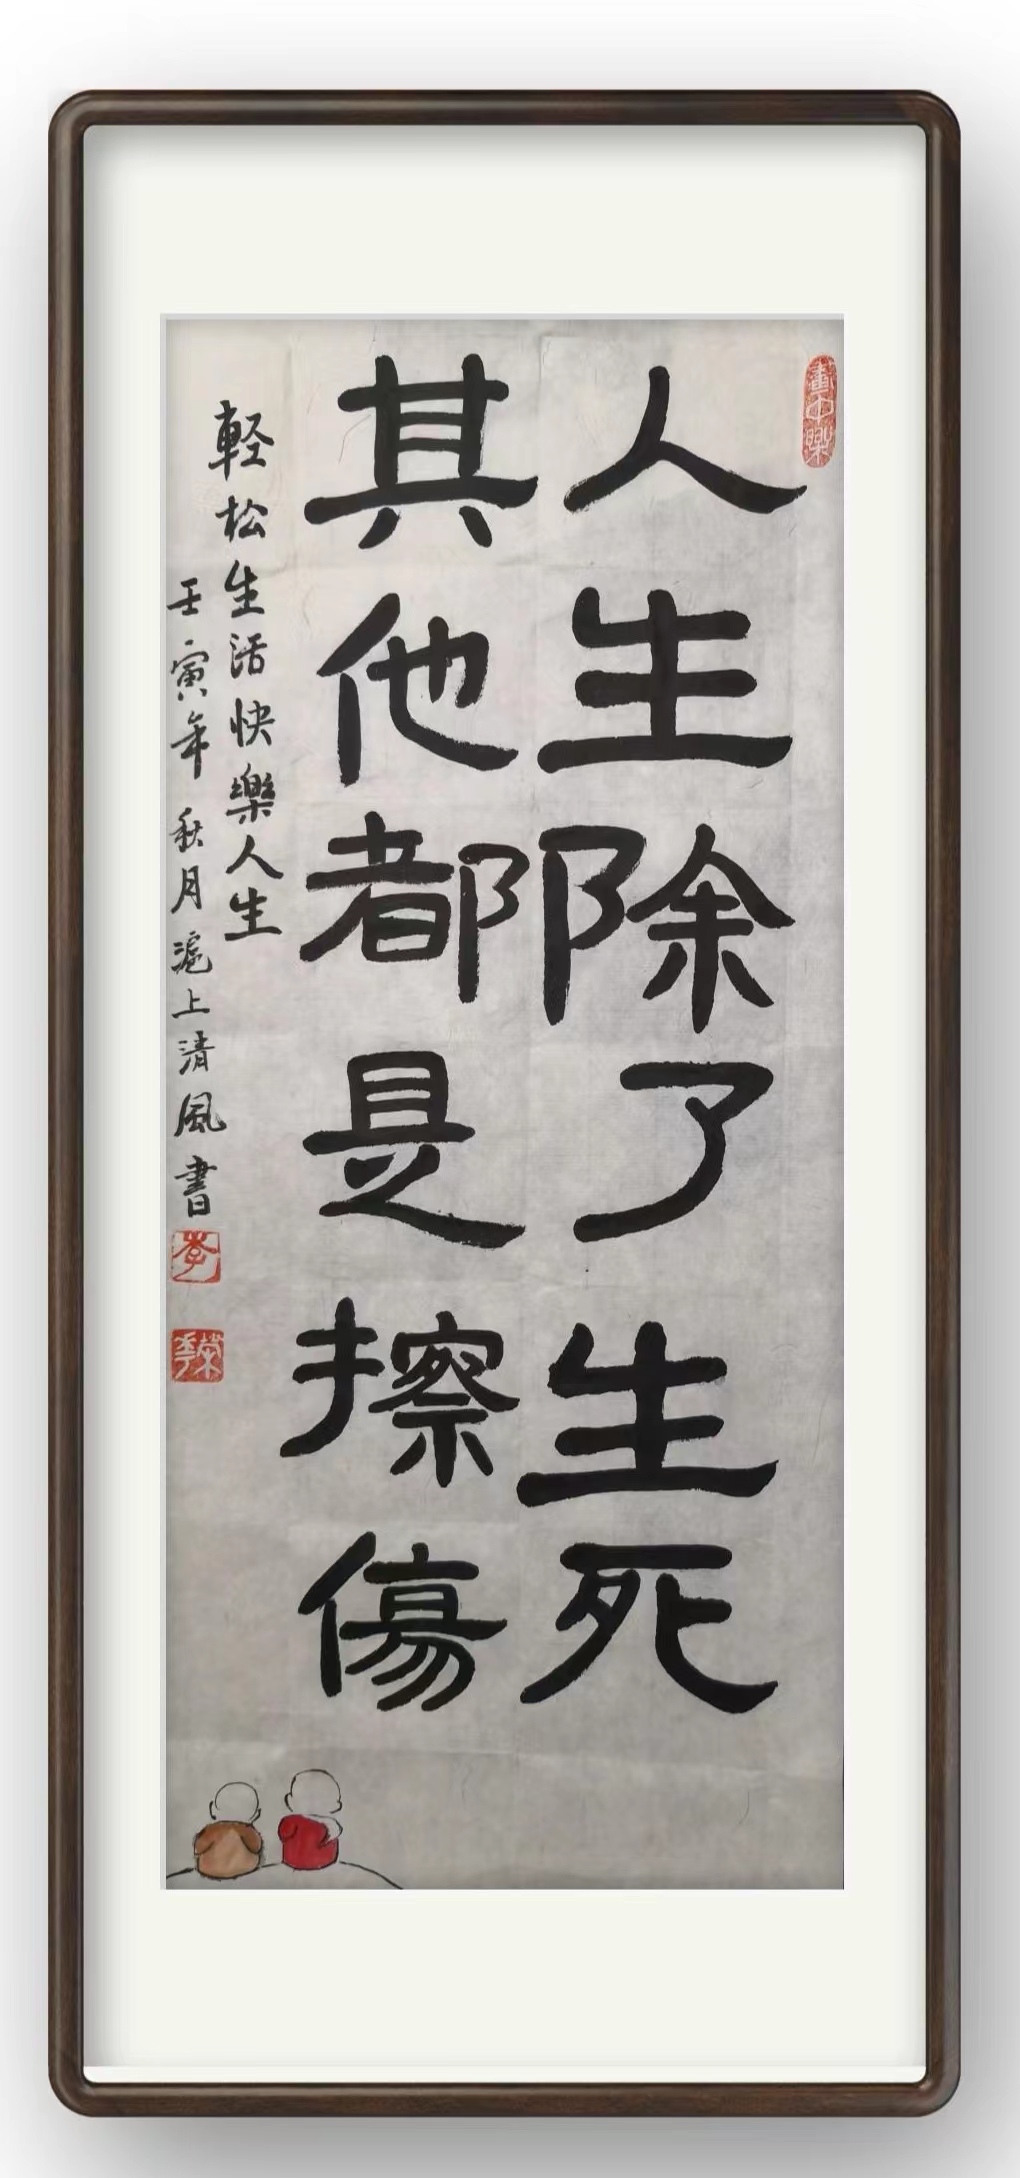 人生除了生死
其他都是擦傷
輕松生活快樂人生
壬寅年秋月滬上清風書